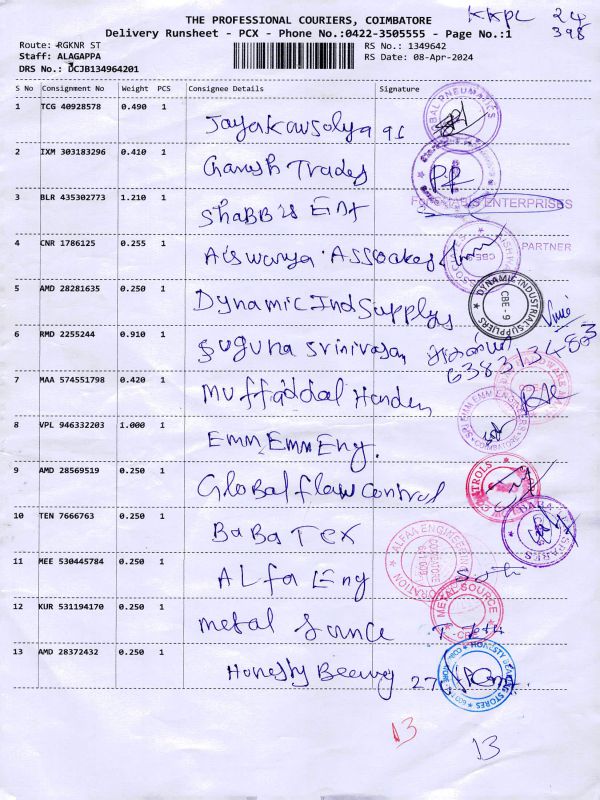 THE PROFESSIONAL COURIERS, COIMBATORE
KKPL 24
398
Delivery Runsheet - PCX - Phone No.:0422-3505555 - Page No.:1
Route: RGKNR ST
RS No.: 1349642
Staff: ALAGAPPA
RS Date: 08-Apr-2024
DRS No.: DCJB134964201
S No Consignment No Weight PCS Consignee Details Signature
1 TCG 40928578 0.490 1 Jayakawsolya 91
2 IXM 303183296 0.410 1 Ganesh Trades
3 BLR 435302773 1.210 1 ShaBB's Ent
ENTERPRISES
PARTNER
4 CNR 1786125 0.255 1 Aiswarya Assoakes
5 AMD 28281635 0.250 1 Dynamic Ind Supplys
DYNAMIC INDUSTRIAL SUPPLIERS CBE - 9
6 RMD 2255244 0.910 1 Suguna Srinivasan
6383134863
7 MAA 574551798 0.420 1 Muffaddal Harden
8 VPL 946332203 1.000 1 Emm Emm Eng.
9 AMD 28569519 0.250 1 Global flaw control
CONTROLS
10 TEN 7666763 0.250 1 BaBa Tex
11 MEE 530445784 0.250 1 ALfa Eng
ALFAA ENGINEERING CORPORATION
12 KUR 531194170 0.250 1 metal Sance
METAL SOURCE
13 AMD 28372432 0.250 1 Honesty Bearing 27
HONESTY BEARING STORES
13
13